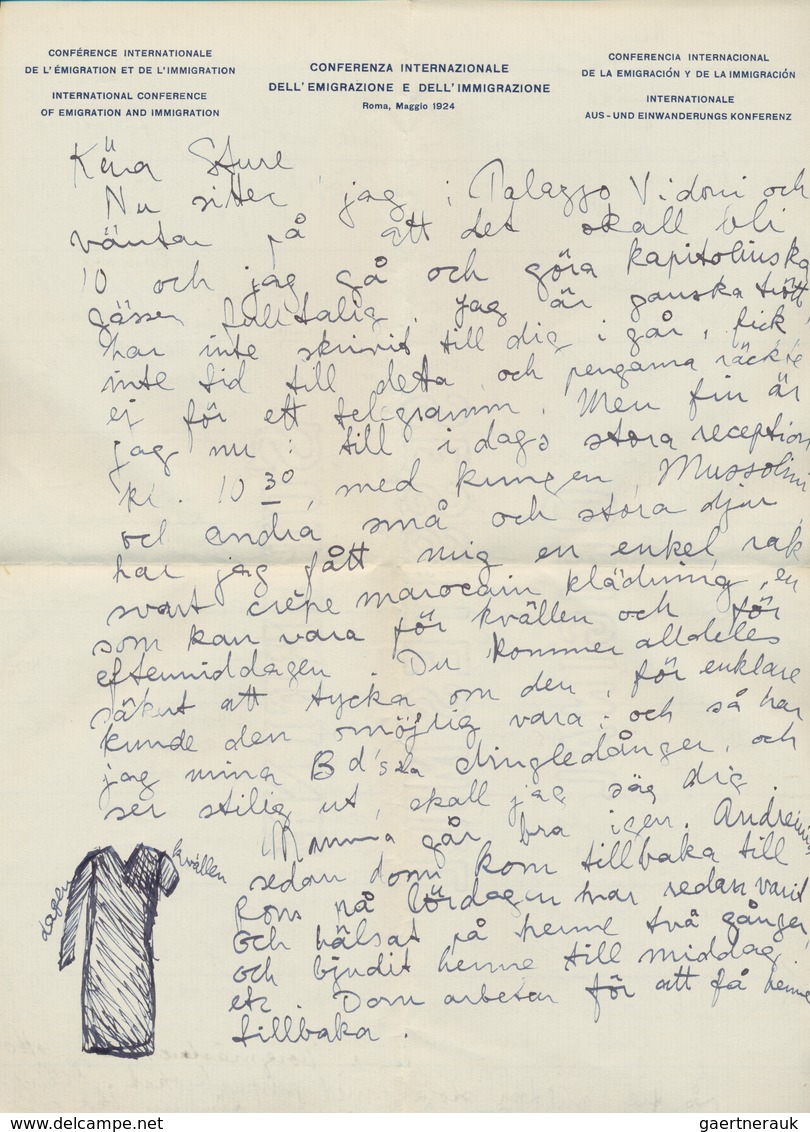 CONFÉRENCE INTERNATIONALE
DE L'ÉMIGRATION ET DE L'IMMIGRATION
INTERNATIONAL CONFERENCE
OF EMIGRATION AND IMMIGRATION
CONFERENZA INTERNAZIONALE
DELL'EMIGRAZIONE E DELL'IMMIGRAZIONE
Roma, Maggio 1924
CONFERENCIA INTERNACIONAL
DE LA EMIGRACIÓN Y DE LA IMMIGRACIÓN
INTERNATIONALE
AUS - UND EINWANDERUNGS KONFERENZ
Kära Sture
Nu sitter jag i Palazzo Vidoni och
väntar på att det skall bli
10 och jag gå och göra kapitolinska
gässen fulltalig. Jag är ganska trött
har inte skrivit till dig i går, fick
inte tid till detta och pengarna räckte
ej för ett telegramm. Men fin är
jag nu: till i dags stora reception
kl. 10 30, med kungen, Mussolini
och andra små och stora djur
har jag fått mig en enkel, rak
svart crêpe marocain klädning, en
som kan vara för kvällen och för
eftermiddagen. Du kommer alldeles
säkert att tycka om den, för enklare
kunde den omöjlig vara; och så har
jag mina B d's:ta dingledånger, och
ser stilig ut, skall jag säg dig.
Mamma går bra igen. Andreinis
sedan dom kom tillbaka till
Rom på lördagen har redan varit
och hälsat på henne två gånger
och bjudit henne till middag.
etc. Dom arbetar för att få henne
tillbaka.
dagen
kvällen
gaertnerauk